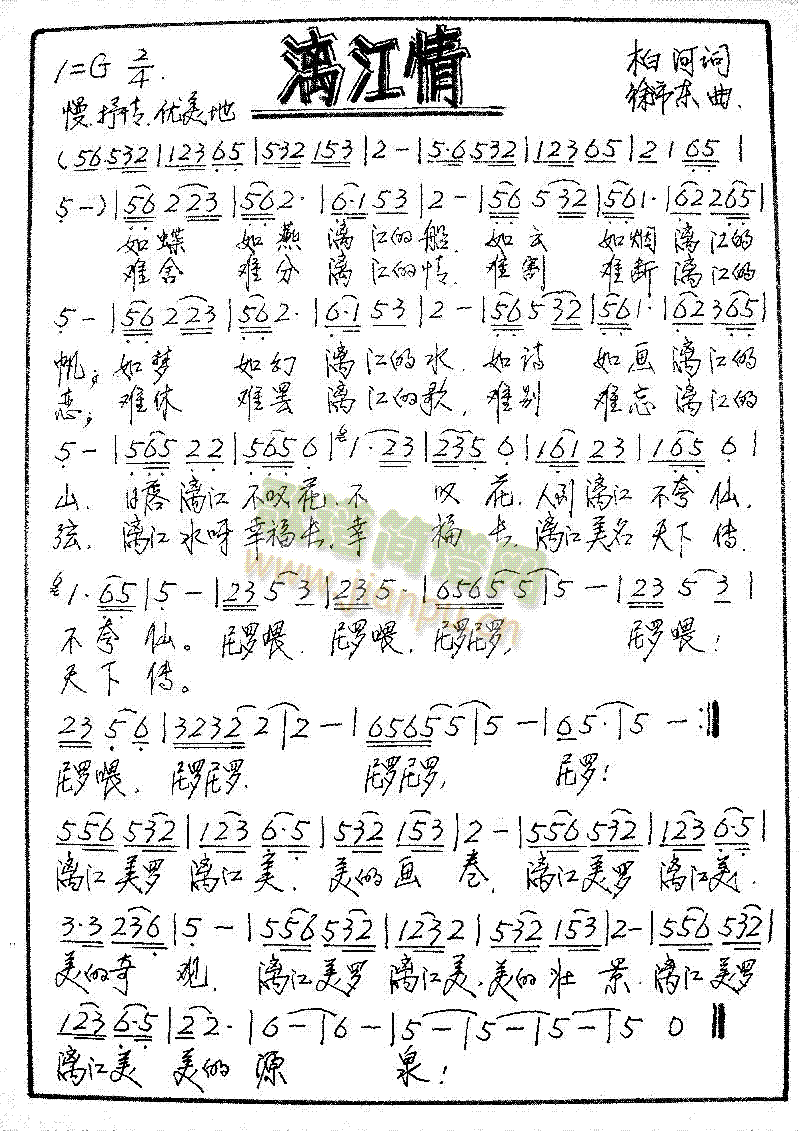 漓江情
1=G 2/4.
柏河词
慢.抒情.优美地
徐沛东曲.
(56532|12365|532153|2-|5·6532|12365|2165|
5-)|56223|562·|6·153|2-|56532|561·|62265|
如蝶 如燕 漓江的船. 如云 如烟 漓江的
难舍 难分 漓江的情. 难割 难断 漓江的
5-|56223|562·|6·153|2-|56532|561·|62365|
帆; 如梦 如幻 漓江的水. 如诗 如画 漓江的
恋; 难休 难罢 漓江的歌, 难别 难忘 漓江的
5-|56522|5650|1·23|2350|16123|1650|
山. 漓江 不叹花. 不 叹 花. 人到漓江 不夸仙.
弦. 漓江水呀 幸福长. 幸 福 长. 漓江美名 天下传.
1·65|5-|2353|235·|65655|5-|2353|
不夸 仙。 尼罗喂. 尼罗喂. 尼罗尼罗, 尼罗喂!
天下 传。
2356|32322|2-|65655|5-|65·|5-:‖
尼罗喂. 尼罗尼罗. 尼罗尼罗, 尼罗!
556532|1236·5|532153|2-|556532|1236·5|
漓江美罗 漓江美. 美的画 卷. 漓江美罗 漓江美.
3·3236|5-|556532|1232|532153|2-|556532|
美的奇 观. 漓江美罗 漓江美. 美的壮 景. 漓江美罗
1236·5|22·|6-|6-|5-|5-|5-|50‖
漓江美 美的 源 泉!
歌谱简谱网
www.jianpu.cn